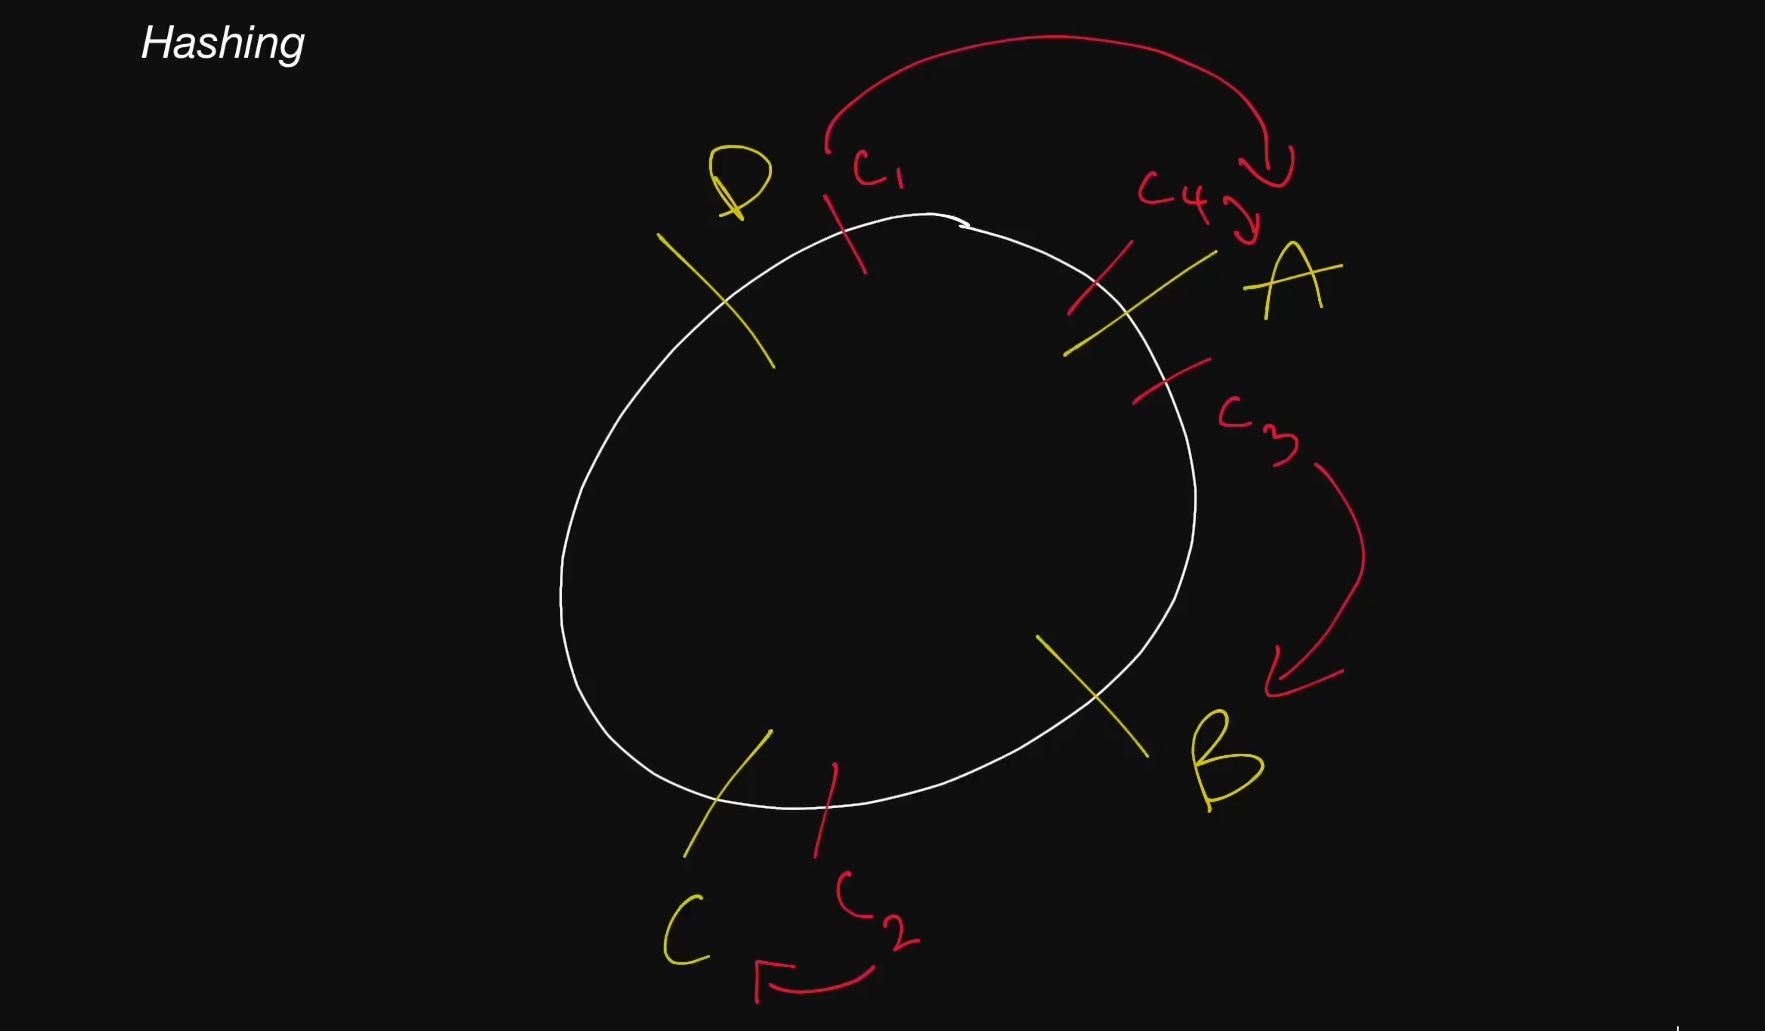 Hashing
D
C1
C4
A
C3
B
C
C2